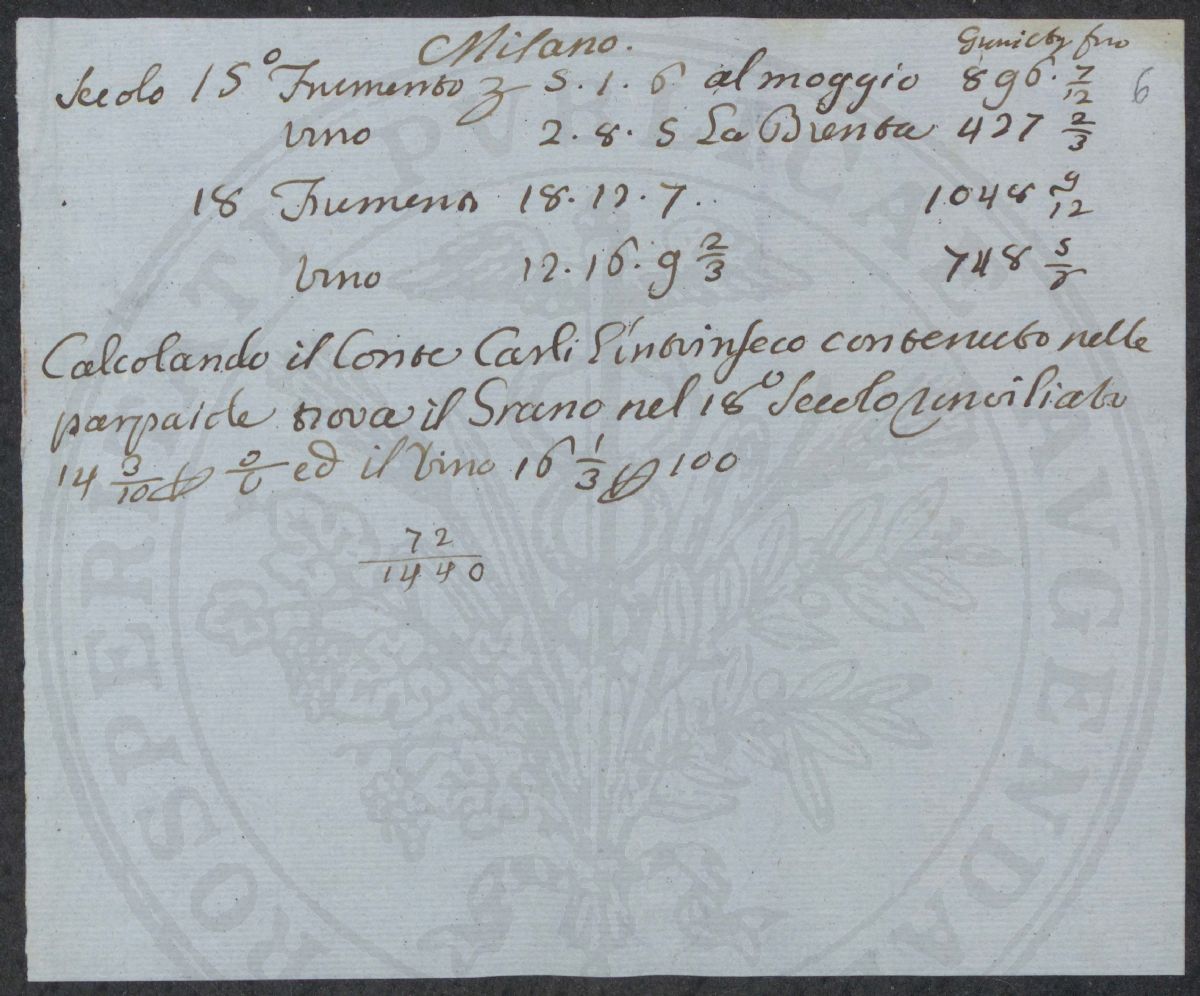 Milano.
Secolo 15º Frumento 5. 1. 6 al moggio 896. 7/12 6
Vino 2. 8. 5 La Brenta 427 2/3
18 Frumento 18. 12. 7.. 1048 9/12
Vino 12. 16. 9 2/3 748 5/8
Calcolando il Conte Carli l'intrinseco contenuto nelle
parpaiole trova il Grano nel 18º Secolo
14 3/10 p 0/0 ed il Vino 16 1/3 p 100
72/1440
PROSPERITATI PVBLICAE AVGENDAE